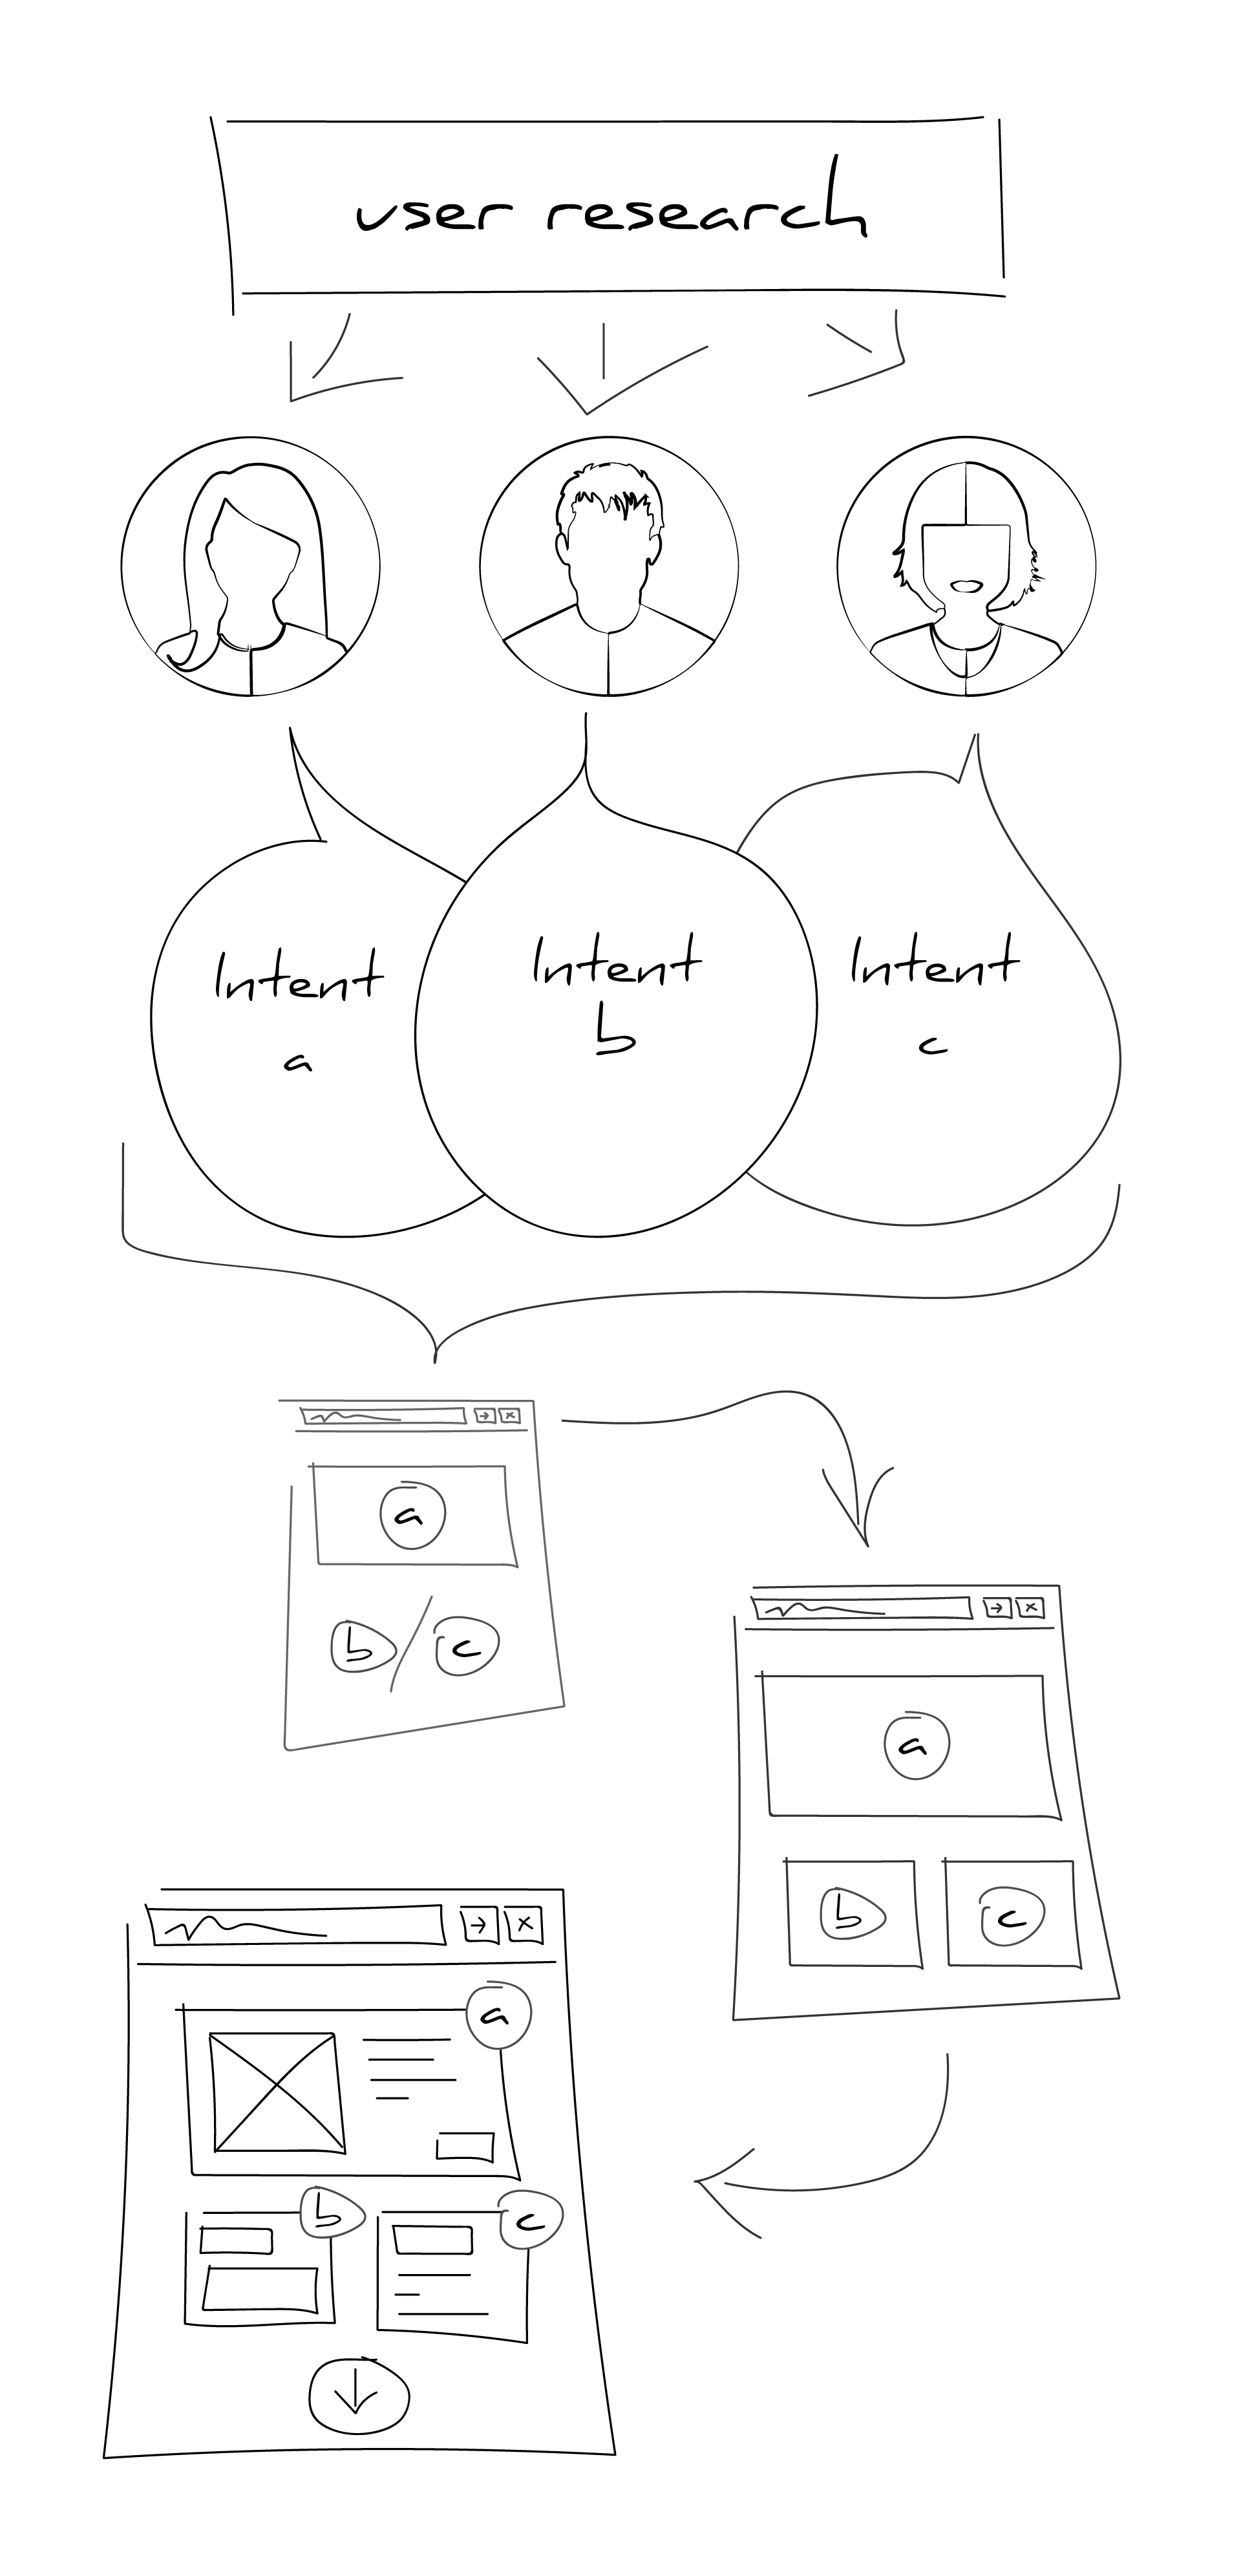 user research
Intent
a
Intent
b
Intent
c
a
b / c
a
b
c
a
b
c